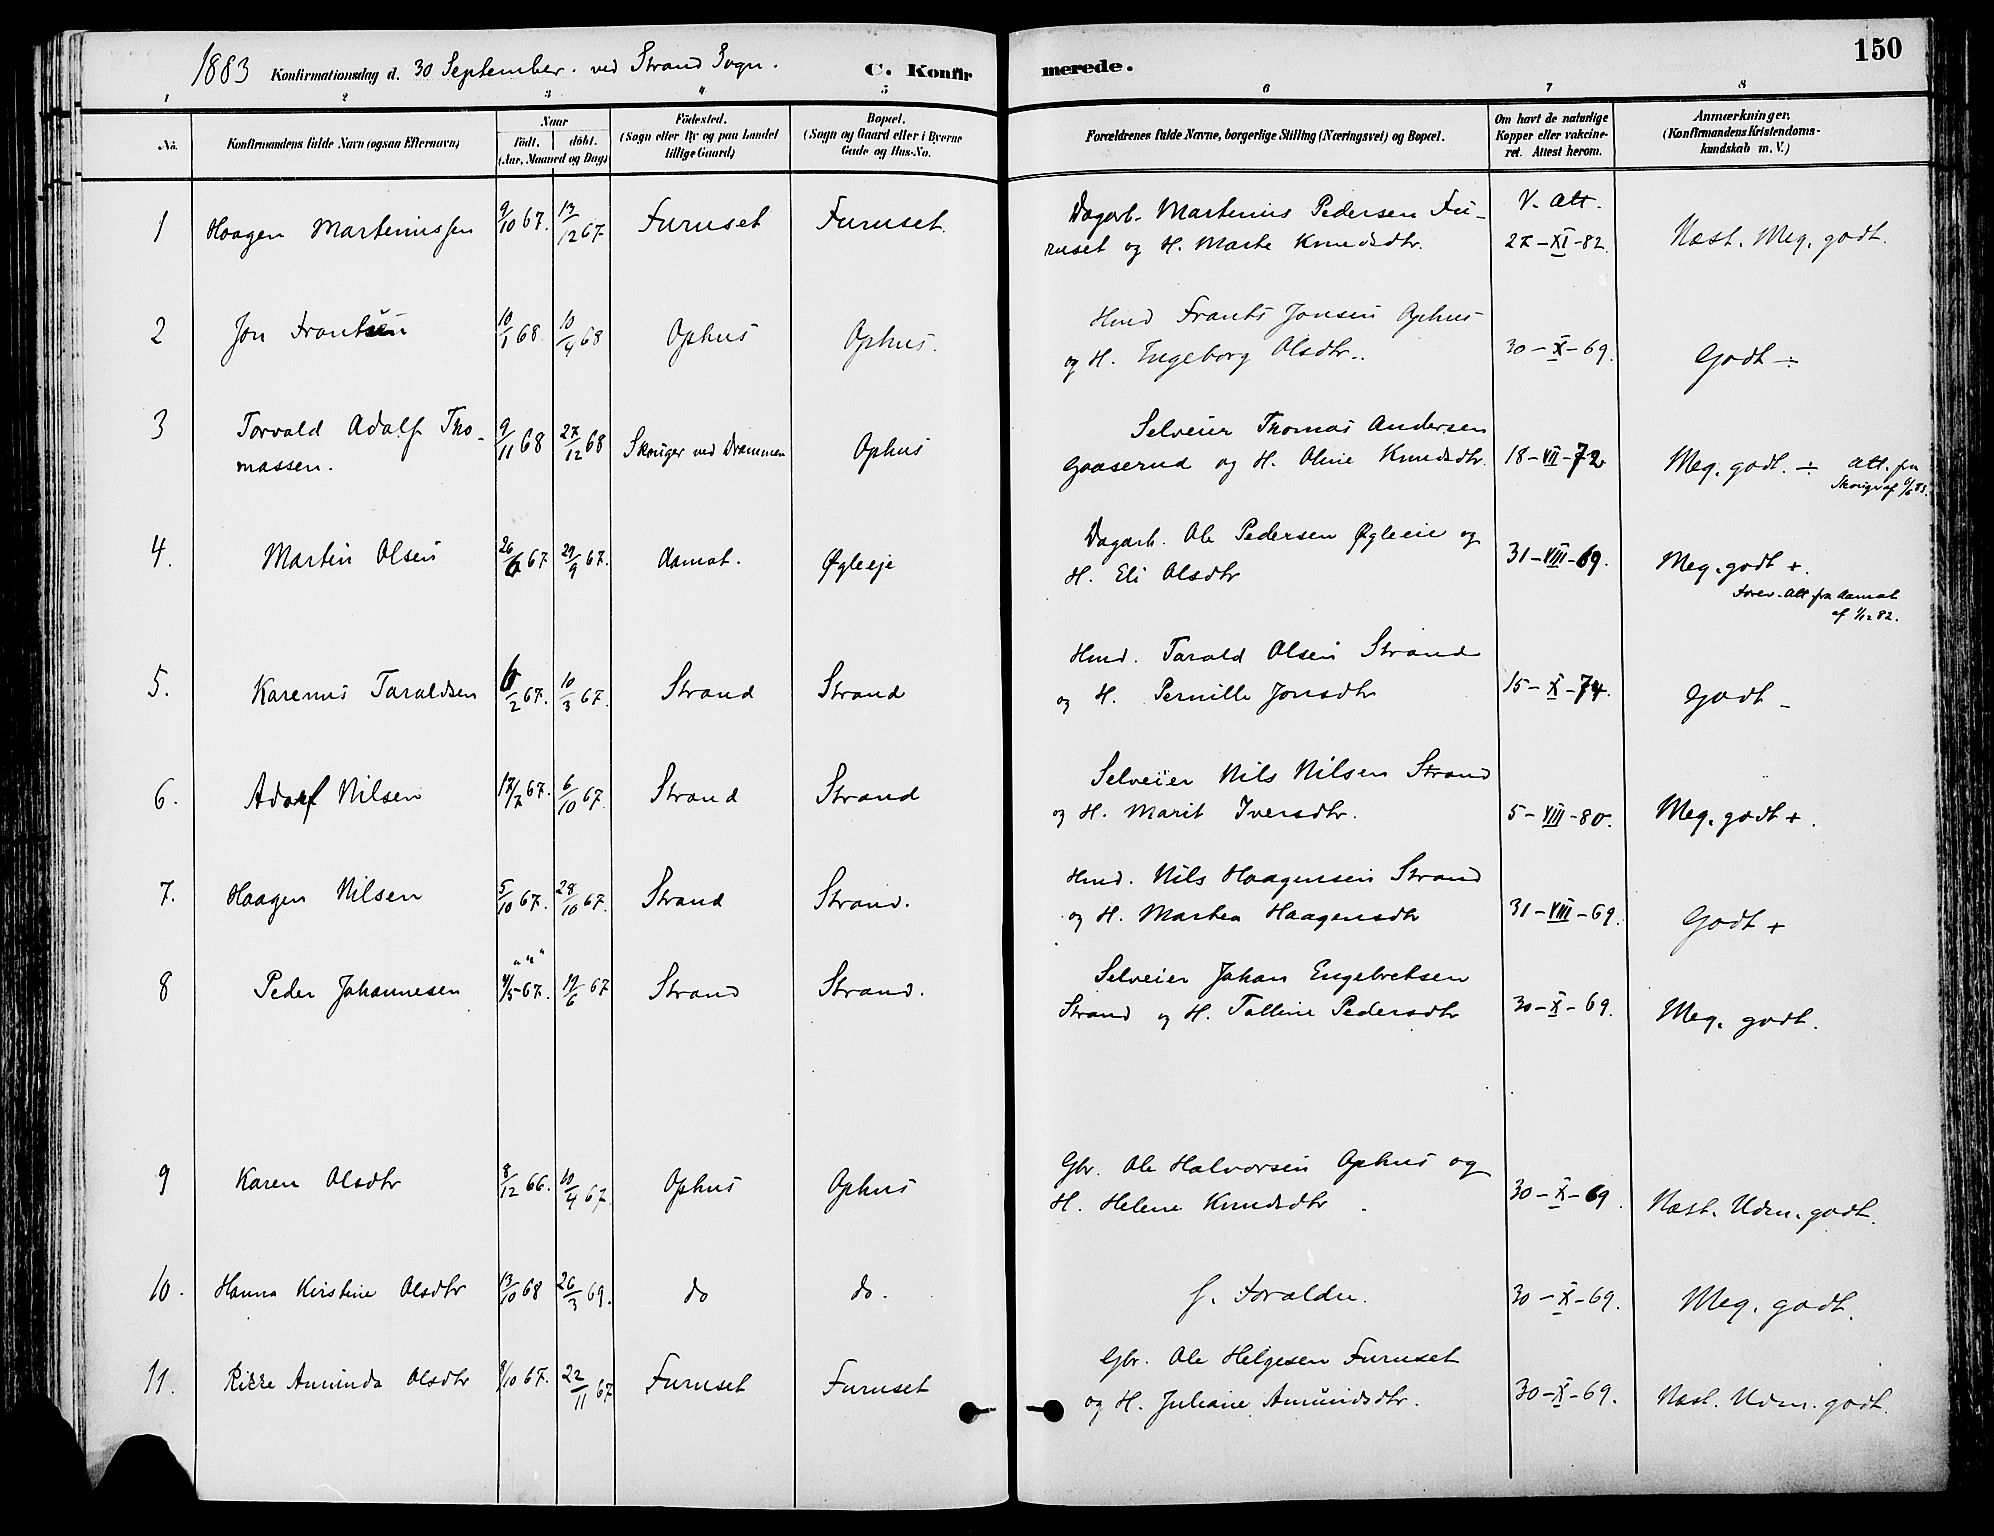 150
1883 Konfirmationsdag d. 30 September. ved Strand Sogn. C. Konfirmerede.
1 2 3 4 5 6 7 8
No. Konfirmandens fulde Navn (ogsaa Efternavn) Naar født. døbt. (Aar, Maaned og Dag) Födested. (Sogn eller By og paa Landet tillige Gaard) Bopæl. (Sogn og Gaard eller i Byerne Gade og Hus-No. Forældrenes fulde Navne, borgerlige Stilling (Næringsvei) og Bopæl. Om havt de naturlige Kopper eller vakcineret. Attest herom. Anmærkninger. (Konfirmandens Kristendomskundskab m. V.)
1 Haagen Martinussen 9/10 67. 13/12 67 Furuset Furuset. Dagarb. Martinus Pedersen Fu- V. Att.
ruset og H. Marte Knudsdtr. 27-XI-82. Næst. Meg. godt.
2 Jon Frantsen 10/1 68. 10/4 68 Ophus Ophus. Hmd Frants Jonsen Ophus
og H. Ingeborg Olsdtr.. 30-X-69. Godt ÷
3 Torvald Adolf Tho- 9/11 68 27/12 68 Skouger ved Drammen Ophus Selveier Thomas Andersen
massen. Gaaserud og H. Oline Knudsdtr. 18-VII-72. Meg. godt. ÷ Att. fra
Skouger af 6/6 83.
4. Martin Olsen 26/6 67 29/9 67. Aamot. Øgleeje Dagarb. Ole Pedersen Øgleeie og
H. Eli Olsdtr 31-VIII-69. Meg. godt +.
Forev. Att. fra Aamot
af 1/12 82.
5. Karenus Taraldsen 6/2 67. 10/3 67. Strand Strand Hmd. Tarald Olsen Strand
og H. Pernille Jonsdtr 15-X-74. Godt -
6. Adolf Nilsen 17/7 67. 6/10 67. Strand Strand Selveier Nils Nilsen Strand
og H. Marit Iversdtr. 5-VIII-80. Meg. godt +.
7. Haagen Nilsen 5/10 67. 28/10 67. Strand Strand. Hmd. Nils Haagensen Strand
og H. Marthea Haagensdtr 31-VIII-69. Godt +
8 Peder Johannesen 4/5 67. 19/6 67 Strand Strand. Selveier Johan Engebretsen
Strand og H. Talline Pedersdtr 30-X-69. Meg. godt.
9 Karen Olsdtr 8/12 66. 10/4 67. Ophus Ophus Gbr. Ole Halvorsen Ophus og
H. Helene Knudsdtr. 30-X-69. Næst. Udm. godt.
10. Hanna Kirstine Olsdtr 13/10 68 26/3 69. do do. f. Forældre. 30-X-69. Meg. godt.
11. Rikke Amunda Olsdtr 8/10 67. 22/11 67 Furuset Furuset Gbr. Ole Helgesen Furuset
og H. Juliane Amundsdtr. 30-X-69. Næst. Udm. godt.